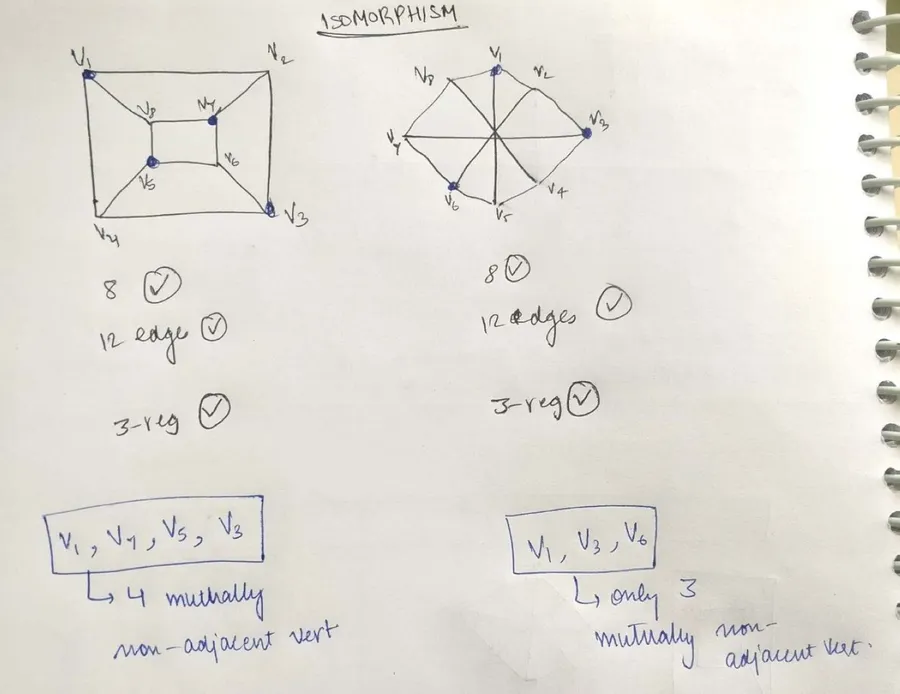 ISOMORPHISM
V1 V2
V8 V7
V5 V6
V4 V3
V1
V8 V2
V7 V3
V6 V4
V5
8
12 edge
3-reg
8
12 edges
3-reg
V1, V7, V5, V3
↳ 4 muthally
non-adjacent vert
V1, V3, V6
↳ only 3
mutually non-
adjacent vert.